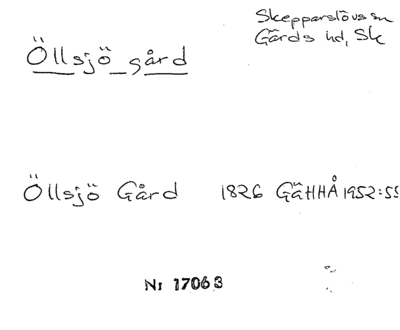 Skepparslövs sn
Gärds hd, Sk
Öllsjö gård
Öllsjö Gård 1826 GäHHÅ 1952:55
Nr 17063